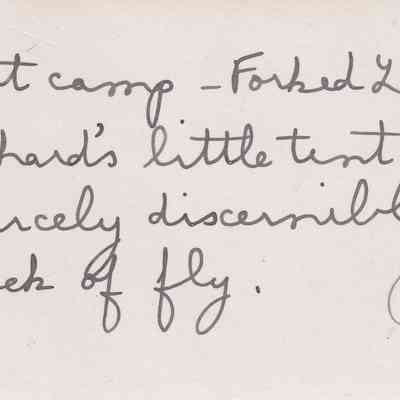 t camp - Forked L
hard's little tent
rcely discernibl
ek of fly.